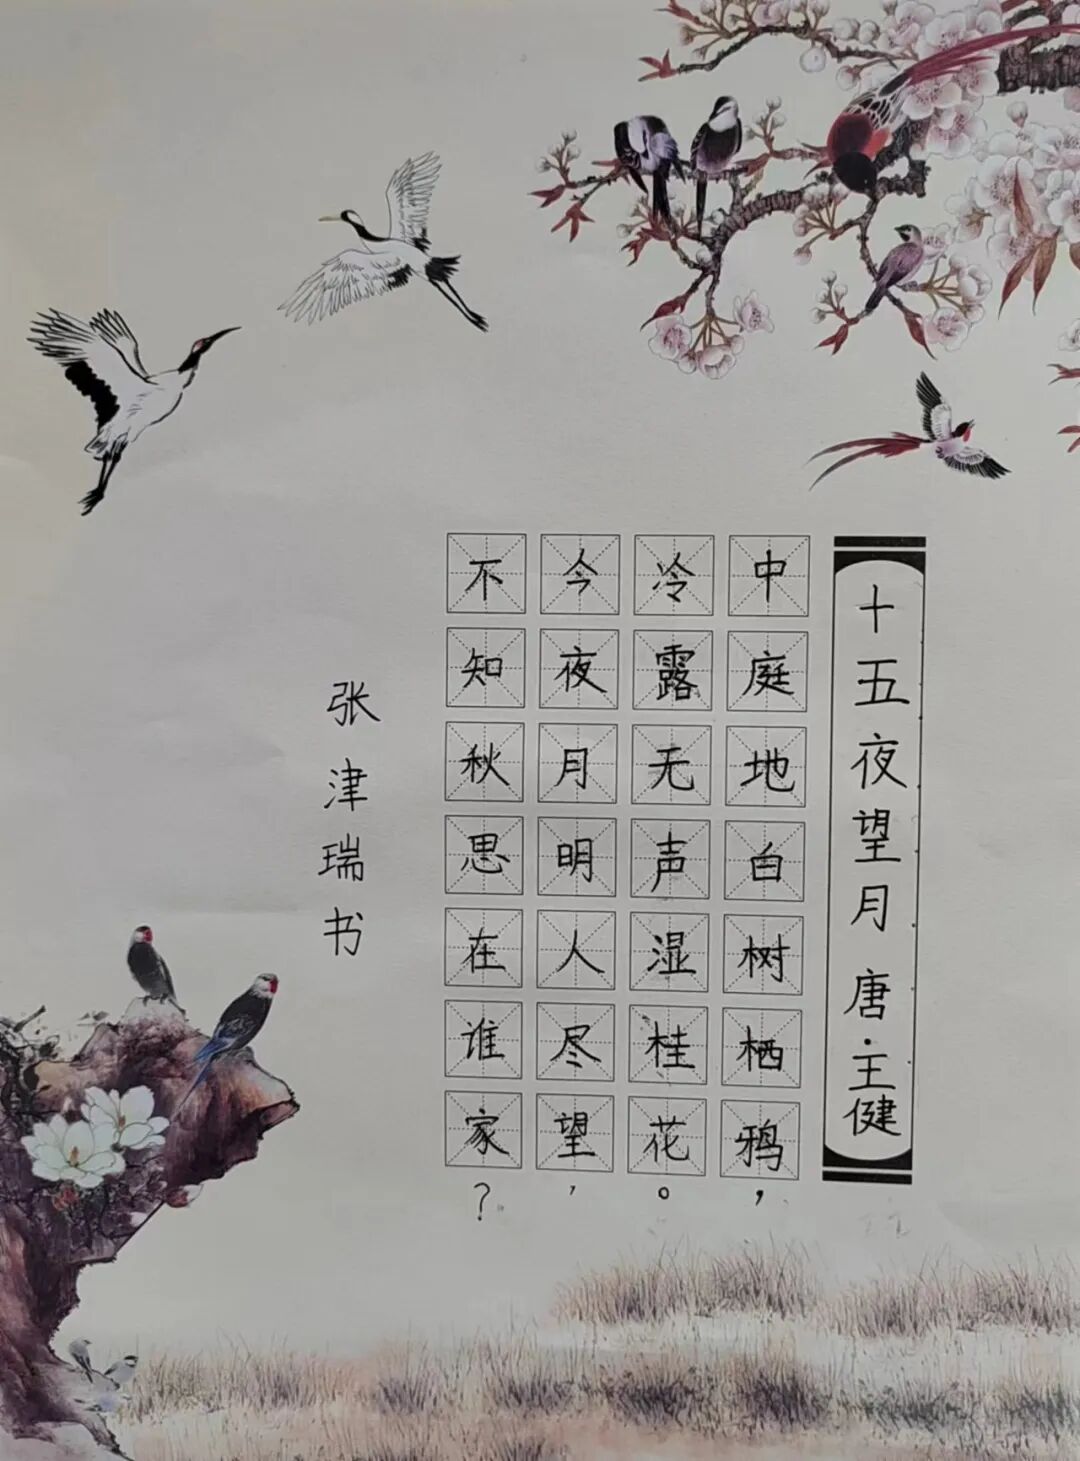 十五夜望月 唐·王健
中庭地白树栖鸦，
冷露无声湿桂花。
今夜月明人尽望，
不知秋思在谁家？
张津瑞书